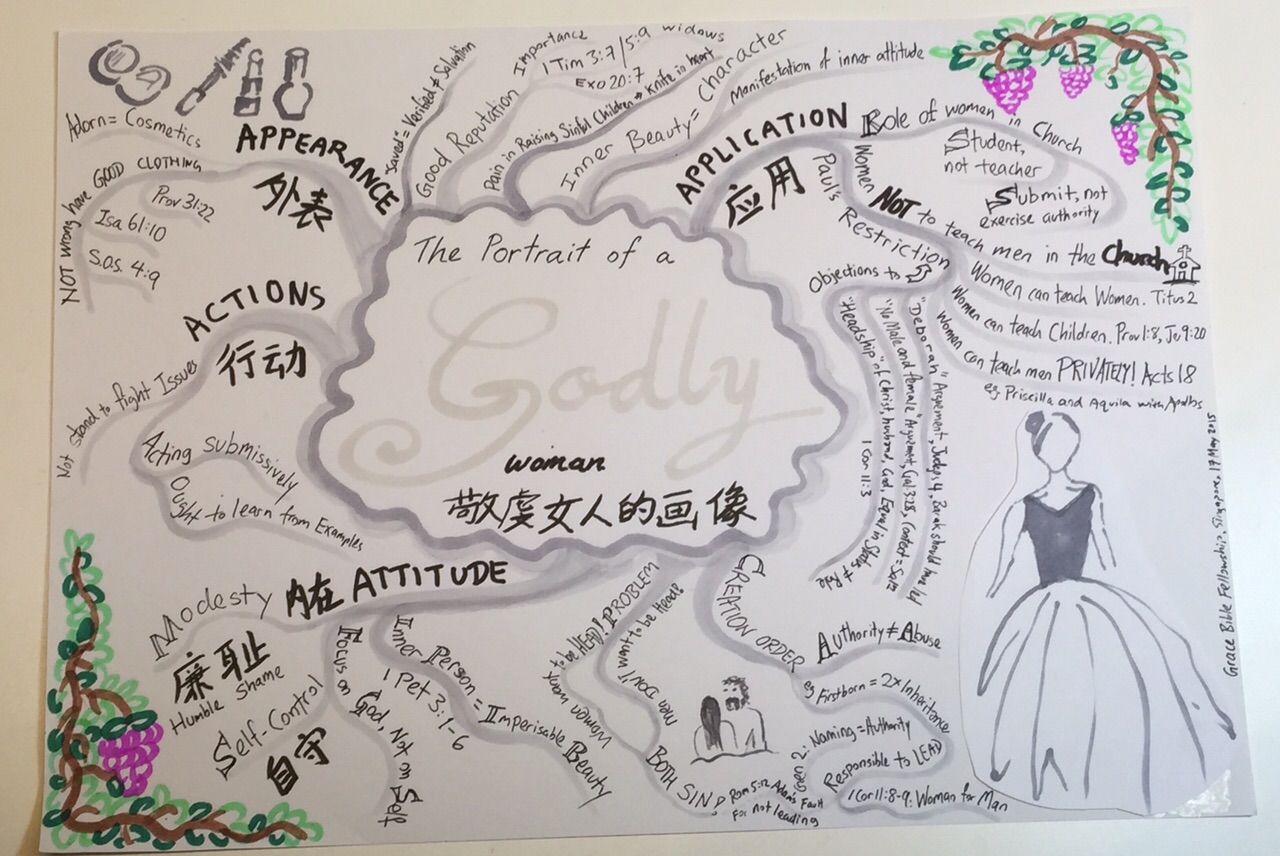 The Portrait of a
Godly
woman
敬虔女人的画像
APPEARANCE
外表
Adorn = Cosmetics
NOT wrong have GOOD CLOTHING
Prov 31:22
Isa 61:10
S.o.s. 4:9
ACTIONS
行动
Not stand to fight Issues
Acting submissively
Ought to learn from Examples
内在 ATTITUDE
Modesty
廉耻
Humble Shame
Self-Control
自守
Focus on God, Not on Self
Inner Person = Imperisable Beauty
1 Pet 3:1-6
PROBLEM
woman want to be HEAD!
men Don't want to be Head!
BOTH SIN
Rom 5:12 Adam's Fault
For not leading
CREATION ORDER
Authority ≠ Abuse
eg Firstborn = 2x Inheritance
Gen 2: Naming = Authority
Responsible to LEAD
1 Cor 11:8-9: Woman for Man
"Saved" = Verified ≠ Salvation
Good Reputation
Importance
1 Tim 3:7 / 5:9 widows
Exo 20:7
Pain in Raising Sinful Children = knife in heart
Inner Beauty = Character
Manifestation of inner attitude
APPLICATION
应用
Role of women in Church
Student,
not teacher
Submit, not
exercise authority
Women NOT to teach men in the Church
Paul's Restriction
Women can teach Women. Titus 2
Women can teach Children. Prov 1:8,
Women can teach men PRIVATELY! Acts 18
eg. Priscilla and Aquila with Apollos
Objections to
"Deborah" Arguement, Judges 4, Barak should have led
"No Male and female" Arguement, Gal 3:28, Context =
"Headship" of Christ, husband, God. Equal in Status ≠ Role
1 Cor 11:3
Grace Bible Fellowship, Singapore, 17 May 2015